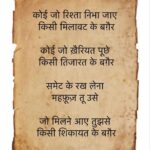 कोई जो रिश्ता निभा जाए
किसी मिलावट के बग़ैर
कोई जो ख़ैरियत पूछे
किसी तिजारत के बग़ैर
समेट के रख लेना
महफ़ूज़ तू उसे
जो मिलने आए तुझसे
किसी शिकायत के बग़ैर